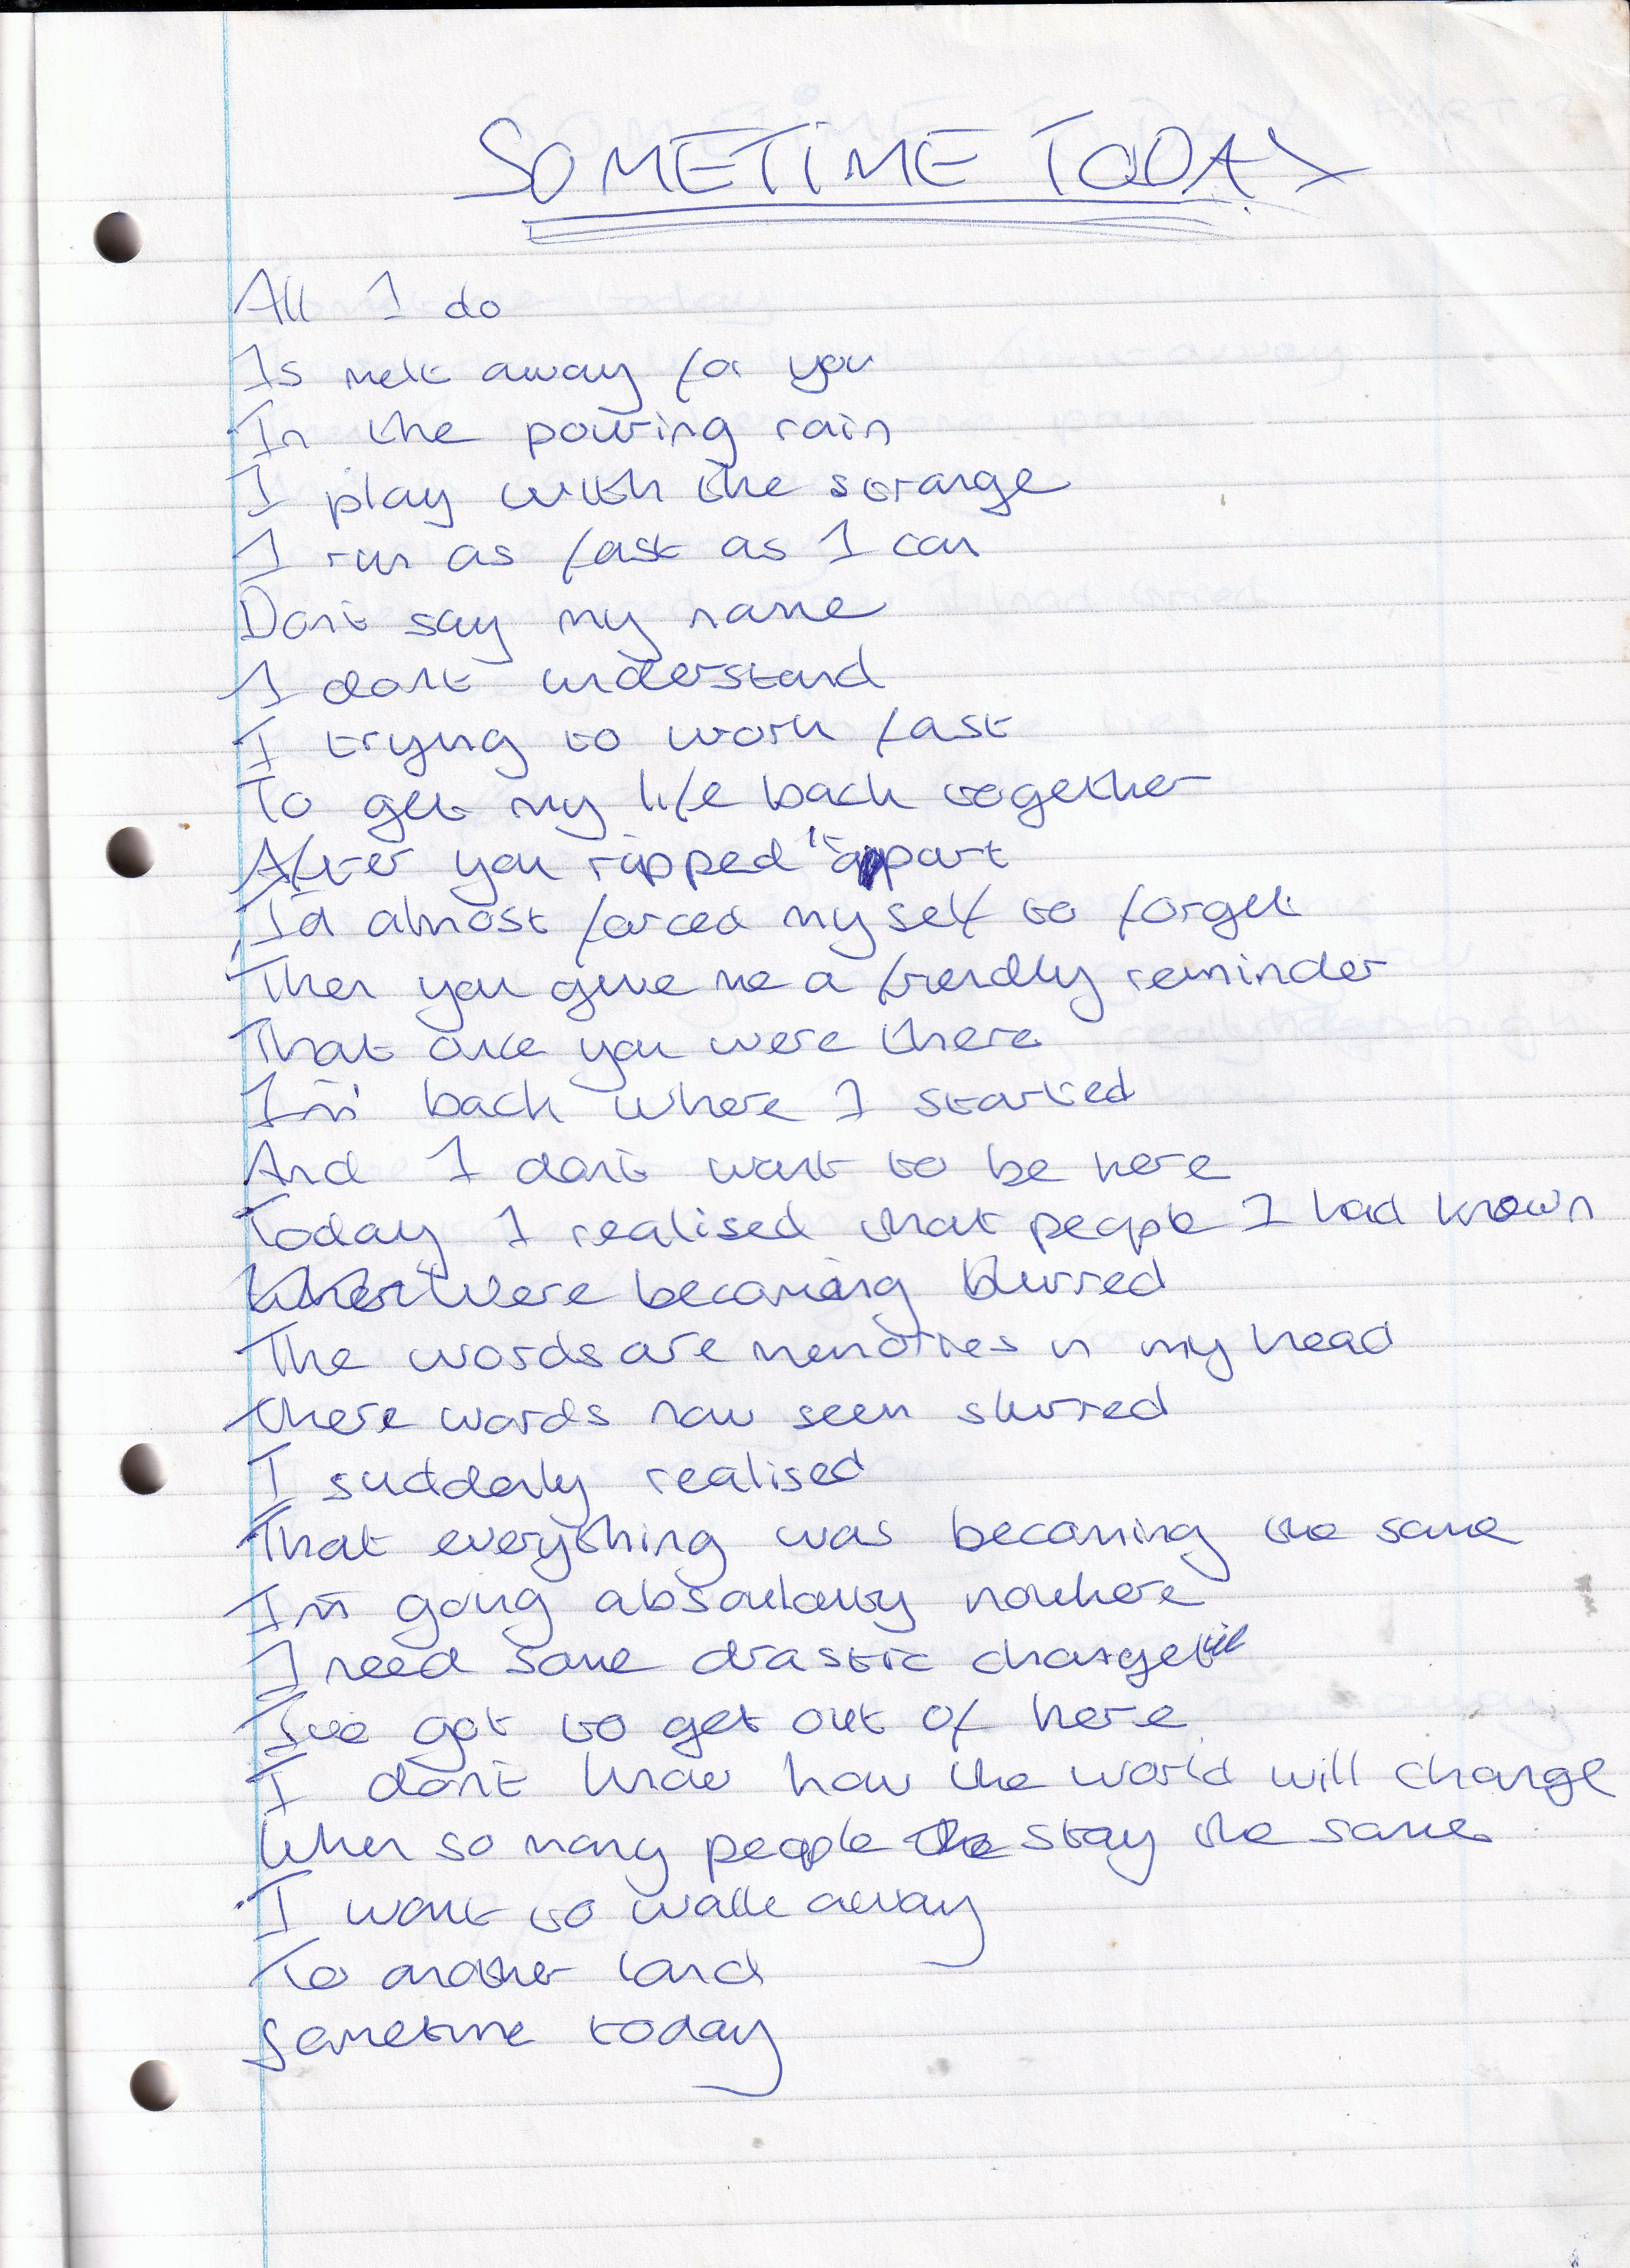 SOMETIME TODAY
All I do
Is melt away for you
In the pouring rain
I play with the strange
I run as fast as I can
Don't say my name
I don't understand
I trying to work fast
To get my life back together
After you ripped it appart
I'd almost forced myself to forget
Then you give me a friendly reminder
That once you were there
I'm back where I started
And I don't want to be here
Today I realised that people I had known
Were becoming blurred
The words are memories in my head
there words now seem slurred
I suddenly realised
That everything was becoming the same
I'm going nowhere
I need some drastic change
I've got to get out of here
I don't know how the world will change
When so many people stay the same
I want to walk away
To another land
Sometime today